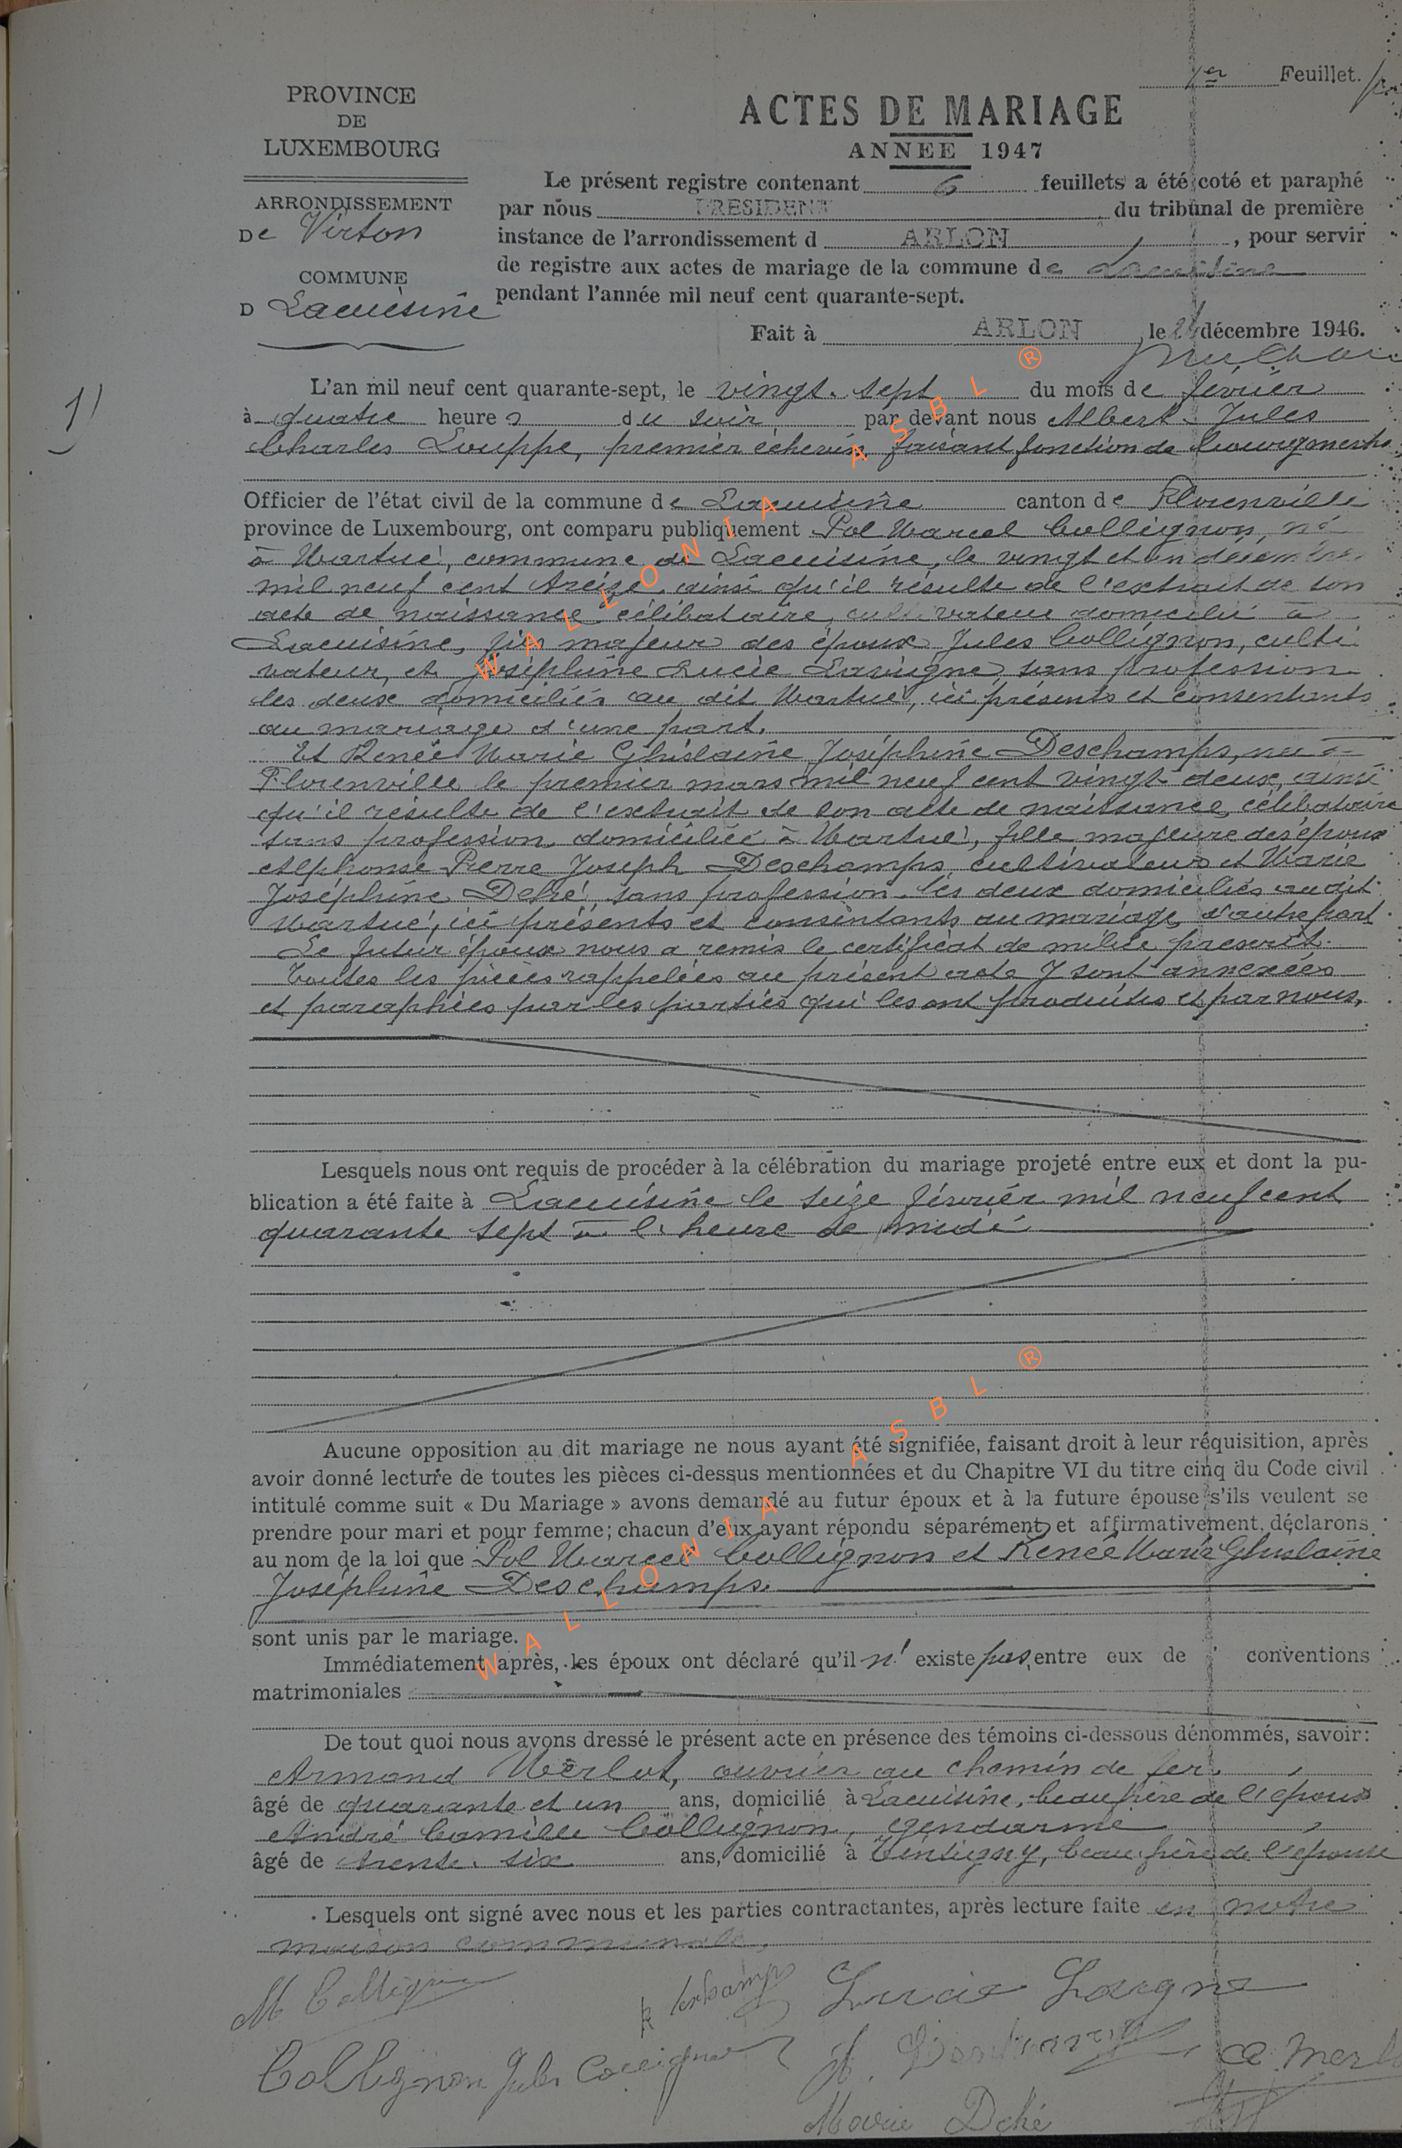 1er Feuillet.
PROVINCE
DE
LUXEMBOURG
ARRONDISSEMENT
De Virton
COMMUNE
D Lacuisine
ACTES DE MARIAGE
ANNEE 1947
Le présent registre contenant 6 feuillets a été coté et paraphé
par nous PRESIDENT du tribunal de première
instance de l'arrondissement d ARLON, pour servir
de registre aux actes de mariage de la commune de Lacuisine
pendant l'année mil neuf cent quarante-sept.
Fait à ARLON, le 24 décembre 1946.
1)
L'an mil neuf cent quarante-sept, le vingt-sept du mois de février
à quatre heures du soir par devant nous Albert Jules
Charles Louppe, premier échevin, faisant fonction de bourgmestre,
Officier de l'état civil de la commune de Lacuisine canton de Florenville
province de Luxembourg, ont comparu publiquement Pol Marcel Collignon, né
à Martué, commune de Lacuisine, le vingt et un décembre
mil neuf cent treize, ainsi qu'il résulte de l'extrait de son
acte de naissance, célibataire, cultivateur domicilié à
Lacuisine, fils majeur des époux Jules Collignon, culti
vateur, et Joséphine Lucie Lavigne, sans profession
les deux domiciliés au dit Martué, ici présents et consentants
au mariage d'une part.
Et Renée Marie Ghislaine Joséphine Deschamps, née à
Florenville le premier mars mil neuf cent vingt-deux, ainsi
qu'il résulte de l'extrait de son acte de naissance, célibataire
sans profession, domiciliée à Martué, fille majeure des époux
Alphonse Pierre Joseph Deschamps, cultivateur et Marie
Joséphine Dehé, sans profession, les deux domiciliés audit
Martué, ici présents et consentants au mariage, d'autre part.
Le futur époux nous a remis le certificat de milice prescrit.
Toutes les pièces rappelées au présent acte y sont annexées
et paraphées par les parties qui les ont produites et par nous.
Lesquels nous ont requis de procéder à la célébration du mariage projeté entre eux et dont la pu-
blication a été faite à Lacuisine le seize février mil neuf cent
quarante sept à l'heure de midi
Aucune opposition au dit mariage ne nous ayant été signifiée, faisant droit à leur réquisition, après
avoir donné lecture de toutes les pièces ci-dessus mentionnées et du Chapitre VI du titre cinq du Code civil
intitulé comme suit « Du Mariage » avons demandé au futur époux et à la future épouse s'ils veulent se
prendre pour mari et pour femme; chacun d'eux ayant répondu séparément et affirmativement, déclarons
au nom de la loi que Pol Marcel Collignon et Renée Marie Ghislaine
Joséphine Deschamps.
sont unis par le mariage.
Immédiatement après, les époux ont déclaré qu'il n'existe pas entre eux de conventions
matrimoniales
De tout quoi nous avons dressé le présent acte en présence des témoins ci-dessous dénommés, savoir:
Armand Merlot, ouvrier au chemin de fer,
âgé de quarante et un ans, domicilié à Lacuisine, beau-frère de l'époux
André Camille Collignon, gendarme,
âgé de trente-six ans, domicilié à Tintigny, beau-frère de l'épouse
Lesquels ont signé avec nous et les parties contractantes, après lecture faite en notre
maison communale,
M Collignon R Deschamps Lucie Lavigne
Collignon Jules Collignon A. Deschamps A Merlot
Marie Dehé
WALLONIA ASBL ®
WALLONIA ASBL ®